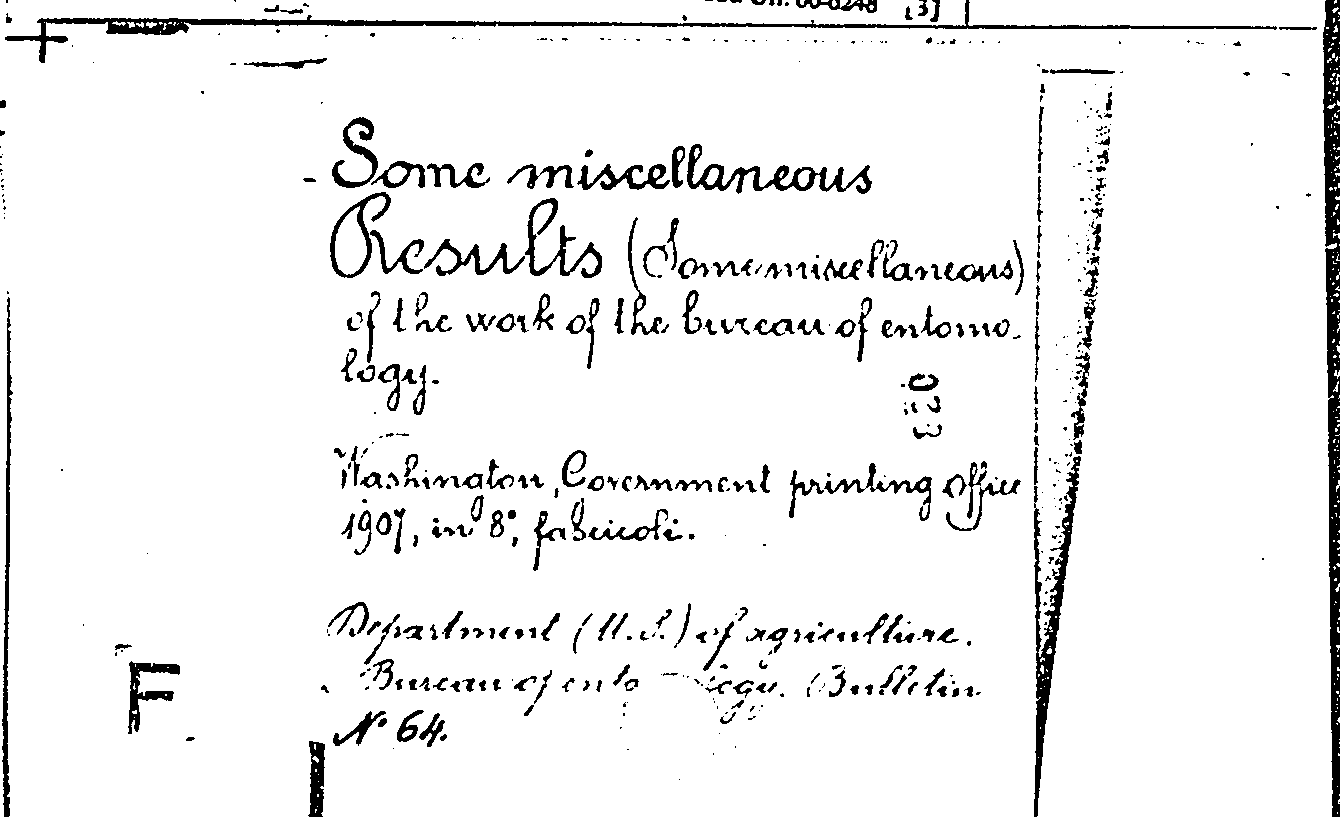 00-6248 [3]
- Some miscellaneous
Results (Some miscellaneous)
of the work of the bureau of entomo-
logy.
023
Washington, Government printing office
1907, in 8°, fascicoli.
Department (U.S.) of agriculture.
Bureau of entomology. Bulletin
N° 64.
F